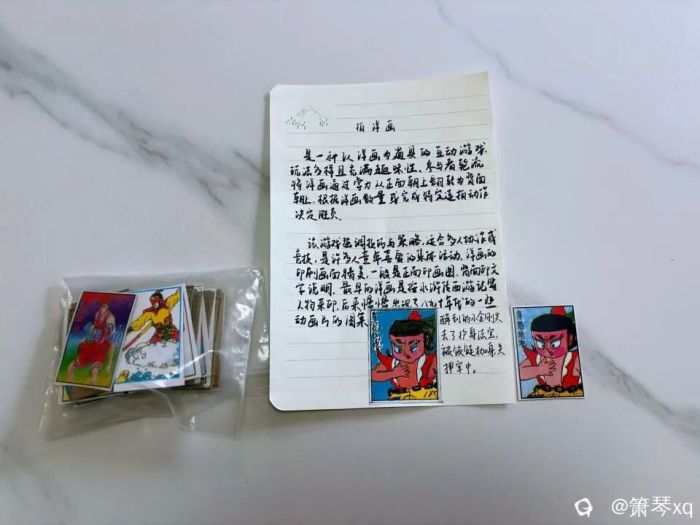 拍洋画
是一种以洋画为道具的互动游戏
玩法多样且充满趣味性、参与者轮流
将洋画通过掌力从正面朝上翻转为背面
朝上.根据洋画数量或完成特定连拍动作
决定胜负.
该游戏强调技巧与策略,适合多人协作或
竞技,是许多人童年喜爱的集体活动.洋画的
印刷画面精美,一般是正面印画图,背面印文
字说明.最早的洋画是按水浒传西游记等
人物来印,后来慢慢出现了八九十年代的一些
动画片的图案
醉倒的小金刚失
去了护身法宝,
被
押牢中.
@箫琴xq